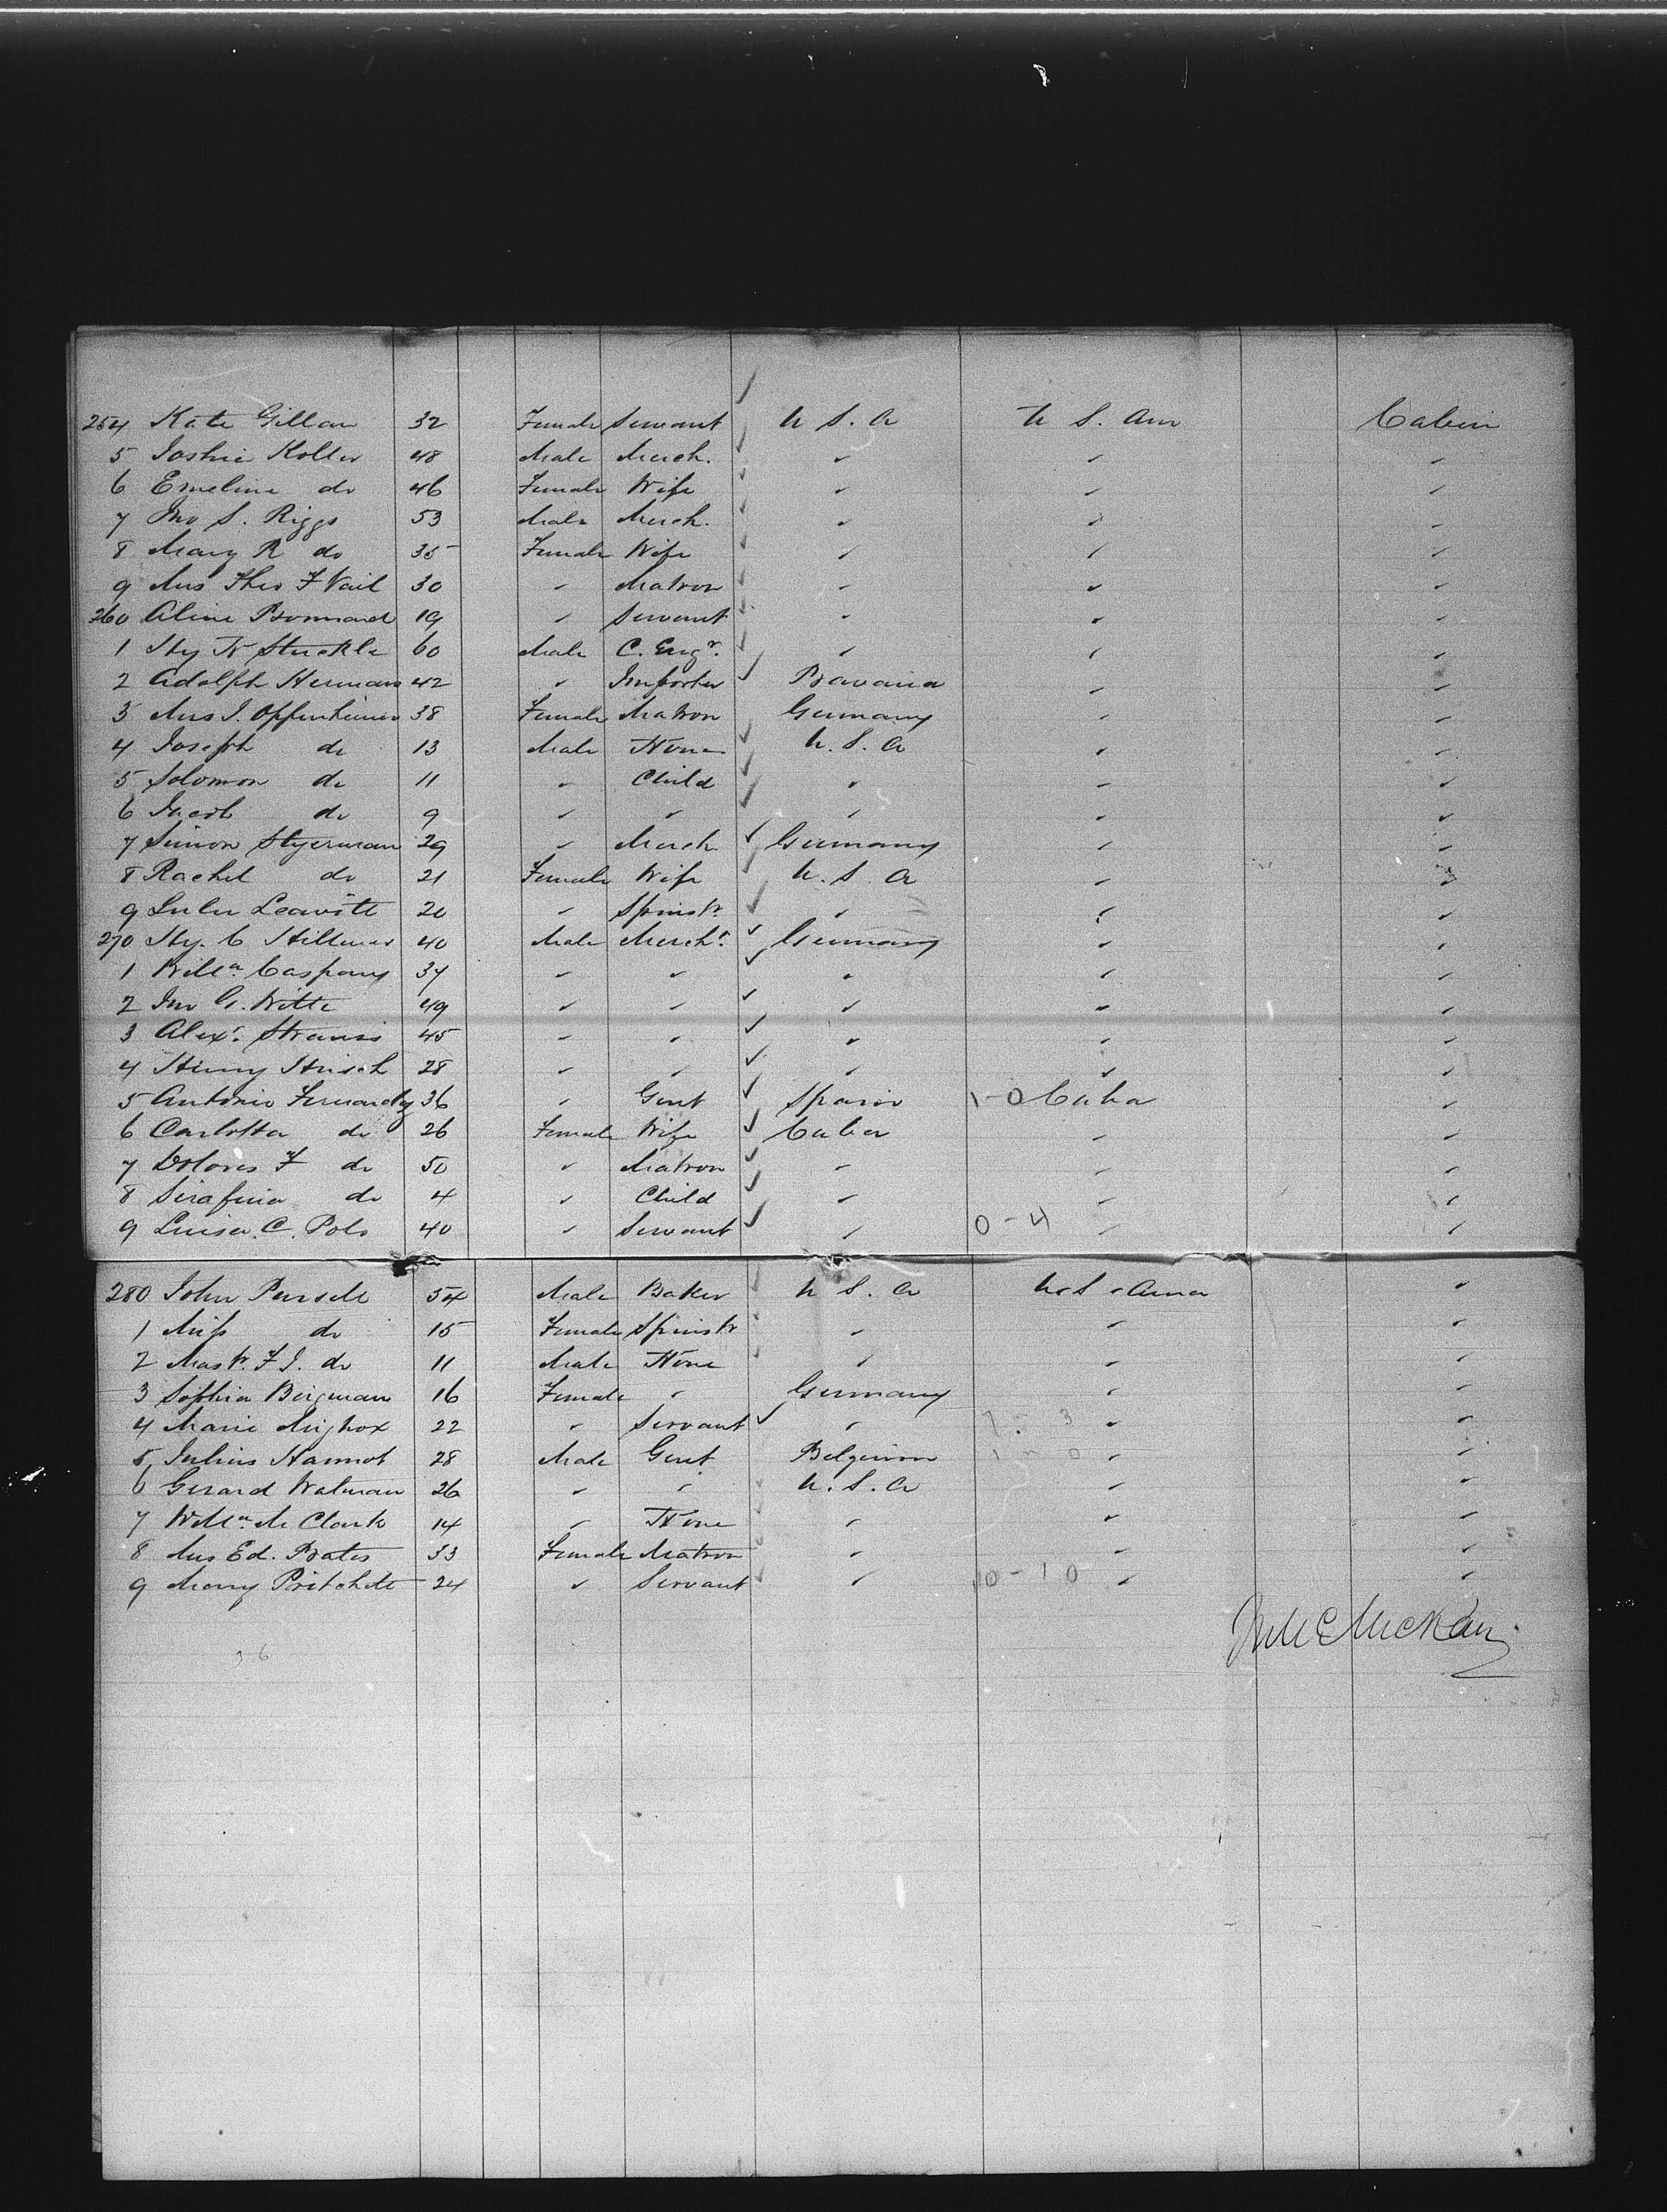 254 Kate Gillan 32 Female Servant U S. A U S. Am Cabin
5 Joshie Koller 48 Male Merch. " " "
6 Emeline do 46 Female Wife " " "
7 Jno S. Riggs 53 Male Merch. " " "
8 Mary R do 35 Female Wife " " "
9 Mrs Theo F Vail 30 " Matron " " "
260 Aline Bonnard 19 " Servant " " "
1 Hy N Stuckle 60 Male C. Engr. " " "
2 Adolph Herman 42 " Importer Bavaria " "
3 Mrs J. Oppenheimer 38 Female Matron Germany " "
4 Joseph do 13 Male None U. S. A " "
5 Solomon do 11 " Child " " "
6 Jacob do 9 " " " " "
7 Simon Styerman 29 " Merch Germany " "
8 Rachel do 21 Female Wife U. S. A " "
9 Lulu Leavitt 20 " Spinstr. " " "
270 Hy. C Hillmers 40 Male Mercht. Germany " "
1 Willm Caspary 37 " " " " "
2 Jno G. Witte 49 " " " " "
3 Alexr. Strauss 45 " " " " "
4 Henry Hirsch 28 " " " " "
5 Antonio Fernandez 36 " Gent Spain 1-0 Cuba "
6 Carlotta do 26 Female Wife Cuba " "
7 Dolores F do 50 " Matron " " "
8 Serafina do 4 " Child " " "
9 Luisa C. Polo 40 " Servant " 0-4 " "
280 John Pursell 54 Male Baker U S. A U.S. Ama "
1 Miss do 15 Female Spinstr " " "
2 Mastr. F J. do 11 Male None " " "
3 Sophia Bergman 16 Female " Germany " "
4 Marie 22 " Servant " 7-3 " "
5 Julius Hannot 28 Male Gent Belgium 1-0 " "
6 Gerard Watman 26 " " U. S. A " "
7 Willm M Clark 14 " None " " "
8 Mrs Ed. Bates 33 Female Matron " " "
9 Mary Pritchett 24 " Servant " 10-10 " "
36